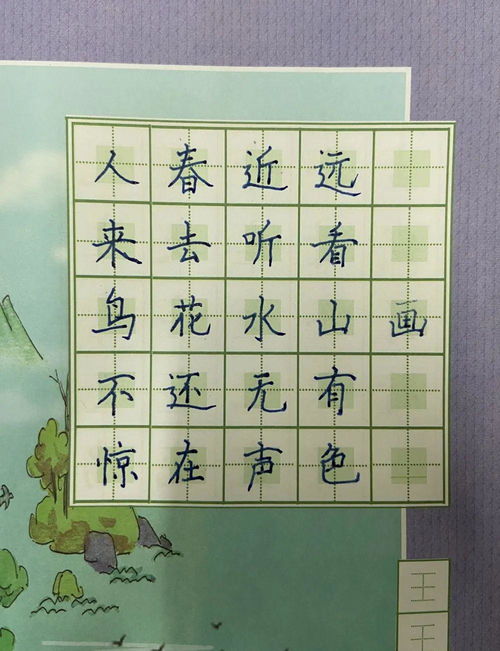 画
远看山有色
近听水无声
春去花还在
人来鸟不惊
王